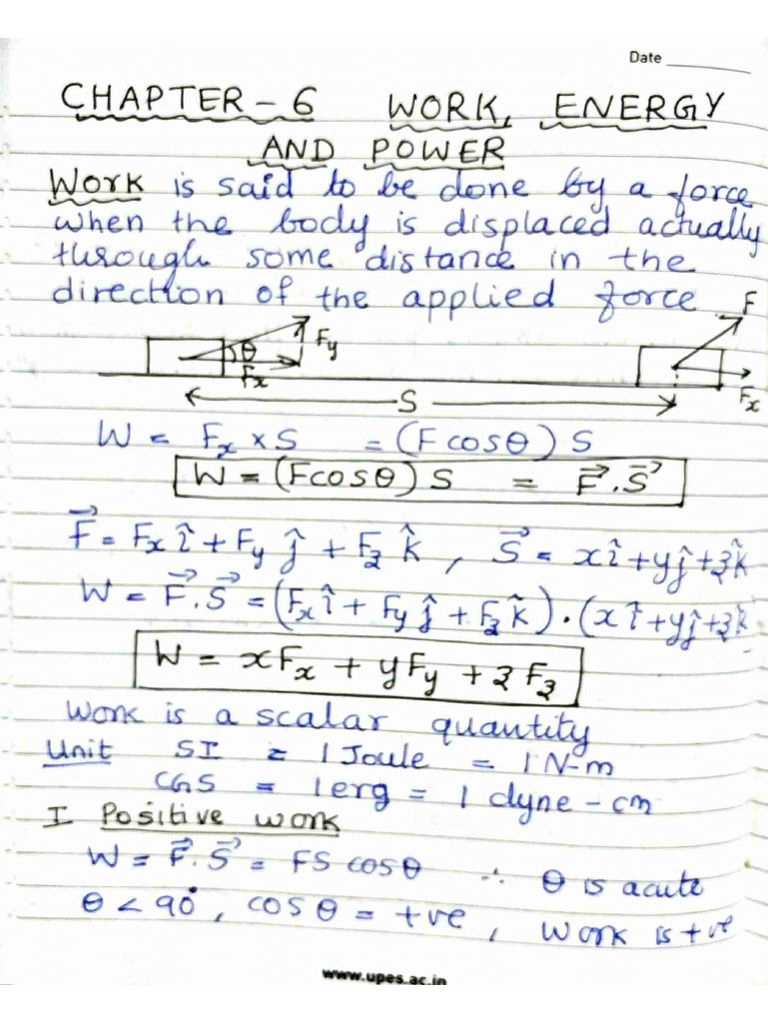 Date
CHAPTER - 6 WORK, ENERGY
AND POWER
Work is said to be done by a force
when the body is displaced actually
through some distance in the
direction of the applied force
F
θ Fy
Fx Fx
S
W = Fx × S = (F cosθ) S
W = (Fcosθ) S = F⃗.S⃗
F⃗ = Fx î + Fy ĵ + Fz k̂ , S⃗ = xî + yĵ + zk̂
W = F⃗.S⃗ = (Fx î + Fy ĵ + Fz k̂) . (x î + yĵ + zk̂
W = xFx + yFy + zFz
Work is a scalar quantity
Unit SI = 1 Joule = 1 N-m
CGS = 1 erg = 1 dyne - cm
I Positive work
W = F⃗.S⃗ = FS cosθ ∴ θ is acute
θ < 90°, cos θ = +ve, Work is +ve
www.upes.ac.in